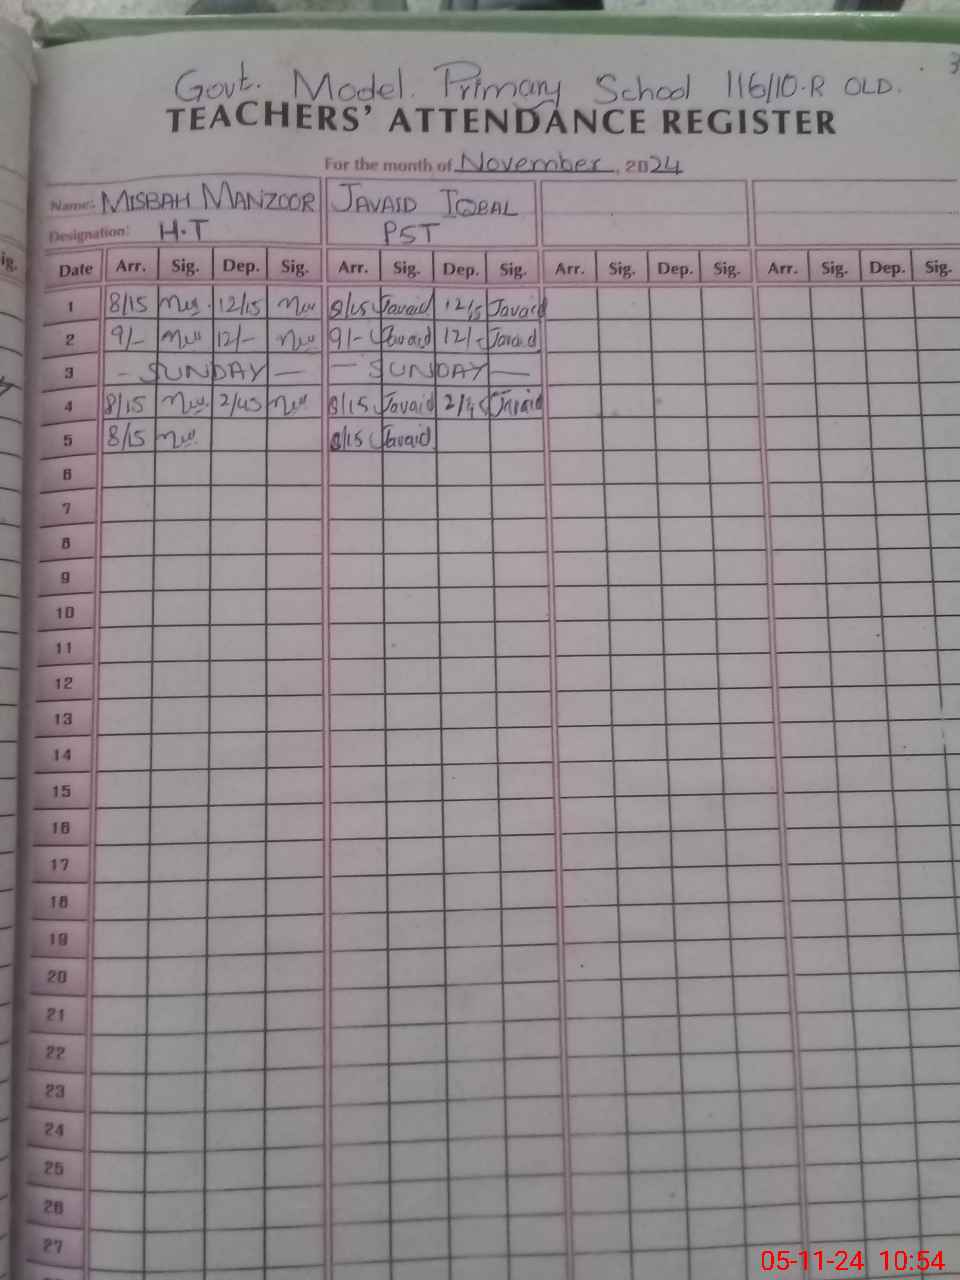 3
Govt. Model. Primary School 116/10.R OLD.
TEACHERS' ATTENDANCE REGISTER
For the month of November, 2024
Name: MISBAH MANZOOR JAVAID IQBAL
Designation: H.T PST
ig.
Date Arr. Sig. Dep. Sig. Arr. Sig. Dep. Sig. Arr. Sig. Dep. Sig. Arr. Sig. Dep. Sig.
1 8/15 12/15 8/15 Javaid 12/15 Javaid
2 9/- 12/- 9/- Javaid 12/- Javaid
3 - SUNDAY - - SUNDAY -
4 8/15 2/45 8/15 Javaid 2/45 Javaid
5 8/15 8/15 Javaid
6
7
8
9
10
11
12
13
14
15
16
17
18
19
20
21
22
23
24
25
26
27
05-11-24 10:54